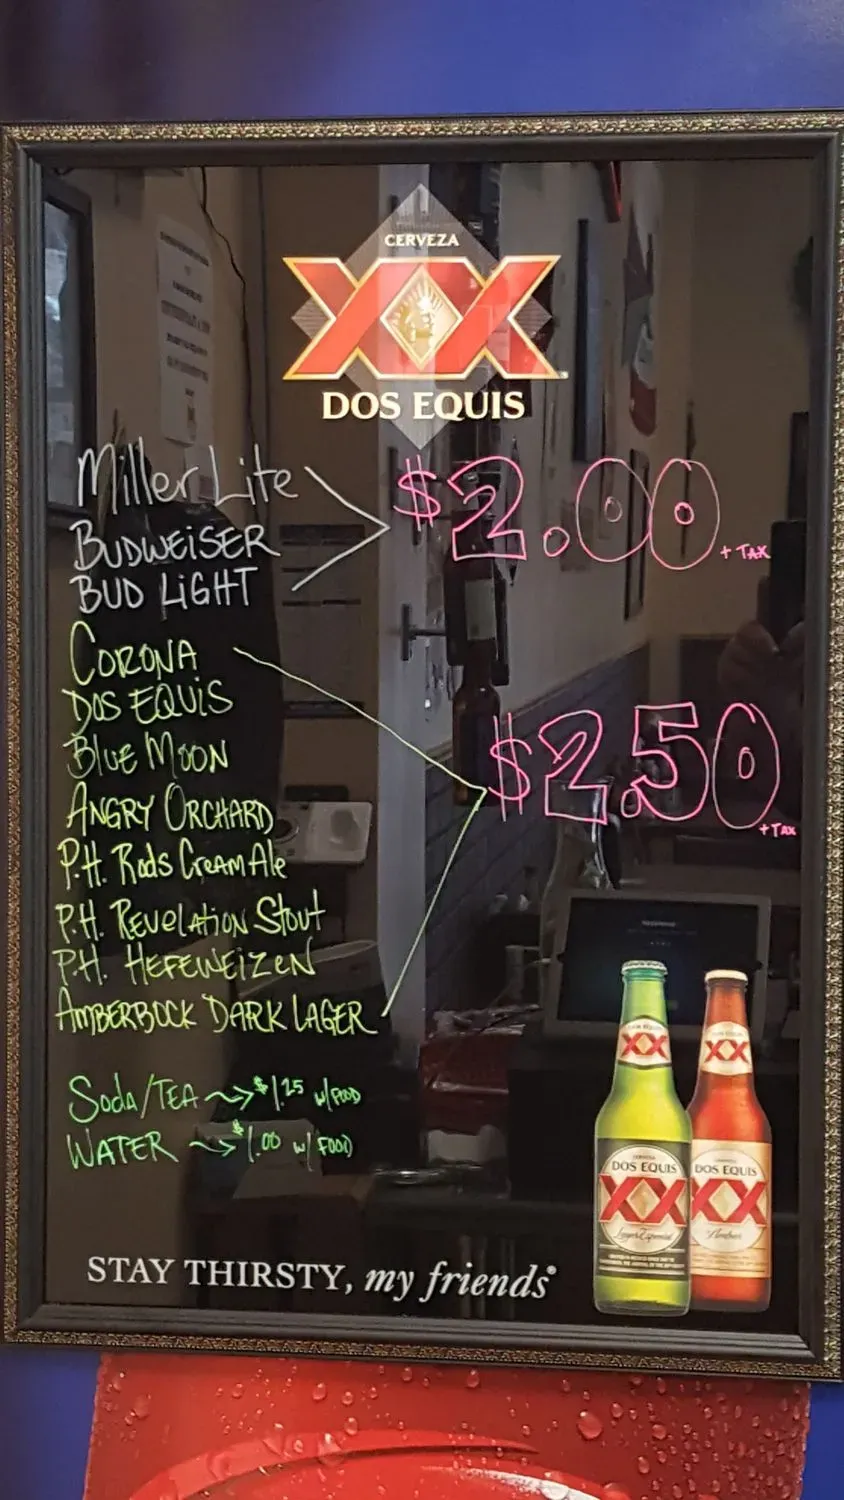 CERVEZA
XX
DOS EQUIS
Miller Lite
BUDWEISER
BUD LIGHT
$2.00
+ TAX
CORONA
DOS EQUIS
Blue Moon
ANGRY ORCHARD
P.H. Rods Cream Ale
P.H. Revelation Stout
P.H. HEFEWEIZEN
AMBERBOCK DARK LAGER
$2.50
+ TAX
Soda/TEA → $1.25 w/FOOD
WATER → $1.00 w/ FOOD
XX
XX
DOS EQUIS
XX
Lager Especial
DOS EQUIS
XX
Amber
STAY THIRSTY, my friends®